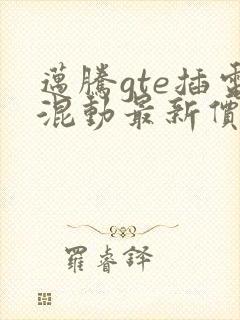 邁騰gte插電
混動最新價
羅睿鐸